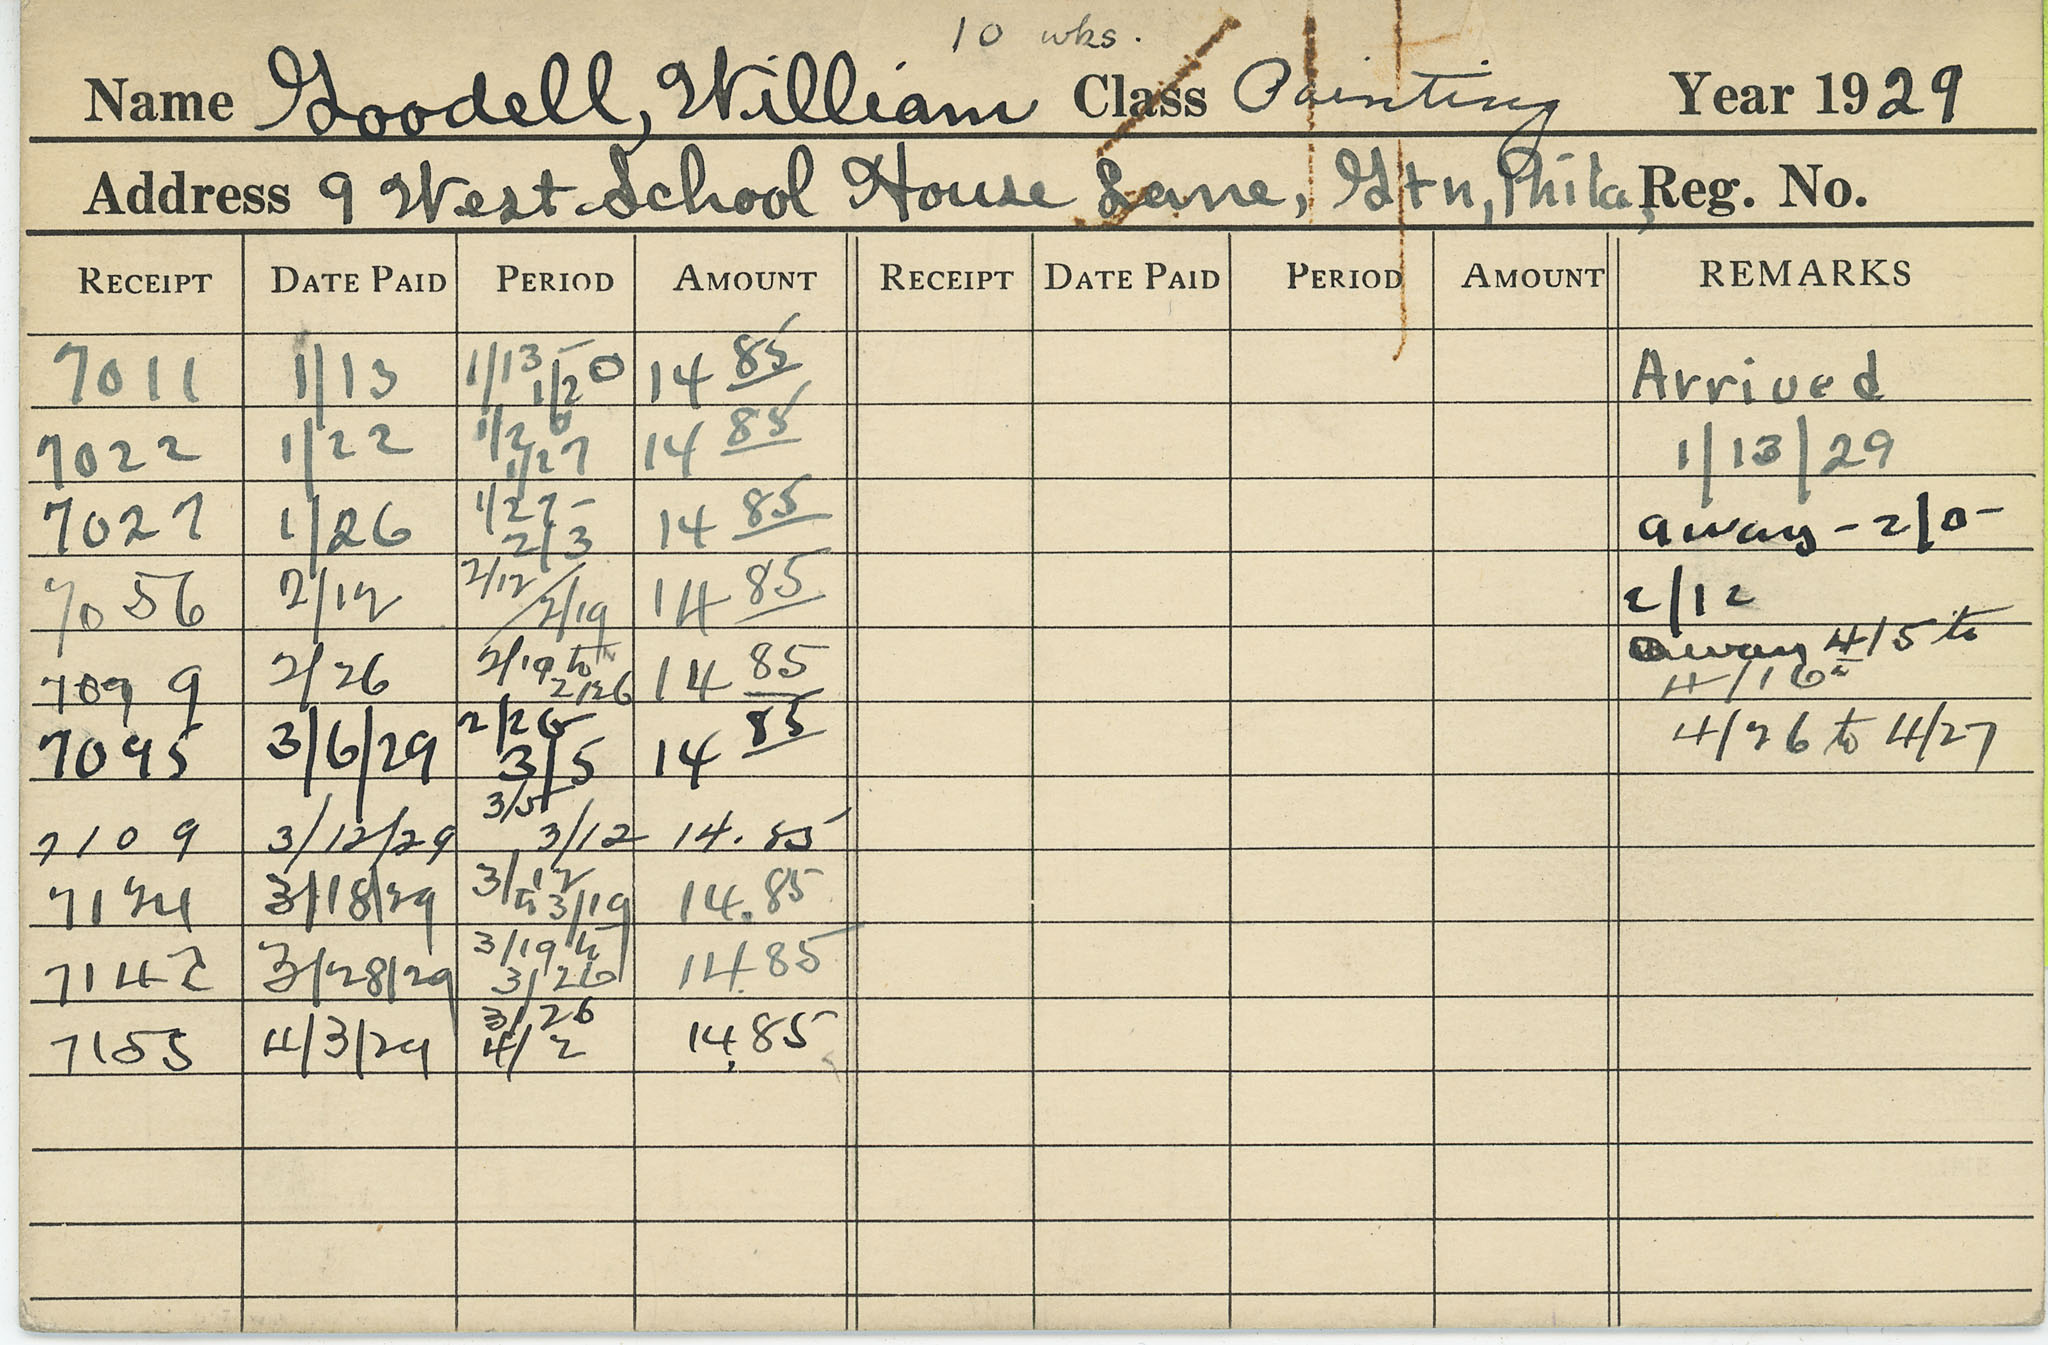 10 wks.
Name Goodell, William Class Painting Year 1929
Address 9 West School House Lane, Gtn, Phila, Reg. No.
RECEIPT DATE PAID PERIOD AMOUNT RECEIPT DATE PAID PERIOD AMOUNT REMARKS
7011 1/13 1/13- 1/20 14 85 Arrived
7022 1/22 1/20 1/27 14 85 1/13/29
7027 1/26 1/27- 2/3 14 85 away - 2/0-
7056 2/12 2/12 / 2/19 14 85 2/12
7079 2/26 2/19 to 2/26 14 85 away 4/5 to 4/16
7095 3/6/29 2/26- 3/5 14 85 4/26 to 4/27
7109 3/12/29 3/5- 3/12 14.85
7124 3/18/29 3/12 to 3/19 14.85
7142 3/28/29 3/19 to 3/26 14.85
7155 4/3/29 3/26 4/2 14.85